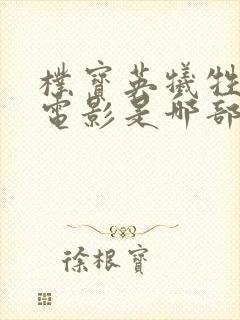 樸寶英犧牲
電影是哪部
徐根寶